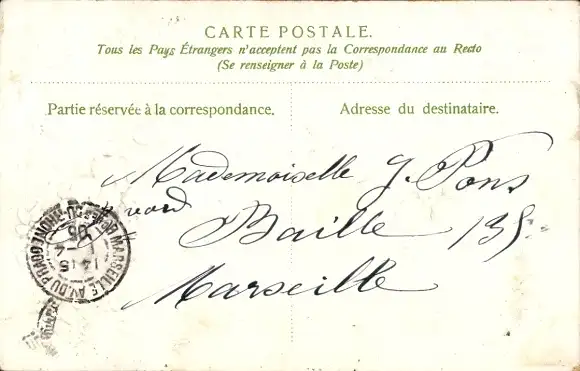 CARTE POSTALE.
Tous les Pays Étrangers n'acceptent pas la Correspondance au Recto
(Se renseigner à la Poste)
Partie réservée à la correspondance.
Adresse du destinataire.
Mademoiselle J. Pons
Bvard Baille 135
Marseille
MARSEILLE AV. DU PRADO BCHES-DU-RHONE
14 15
05